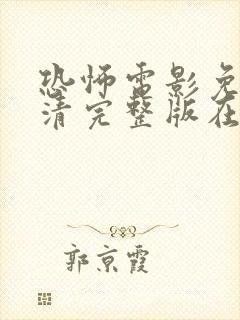 恐怖电影免
清完整版在
郭京霞